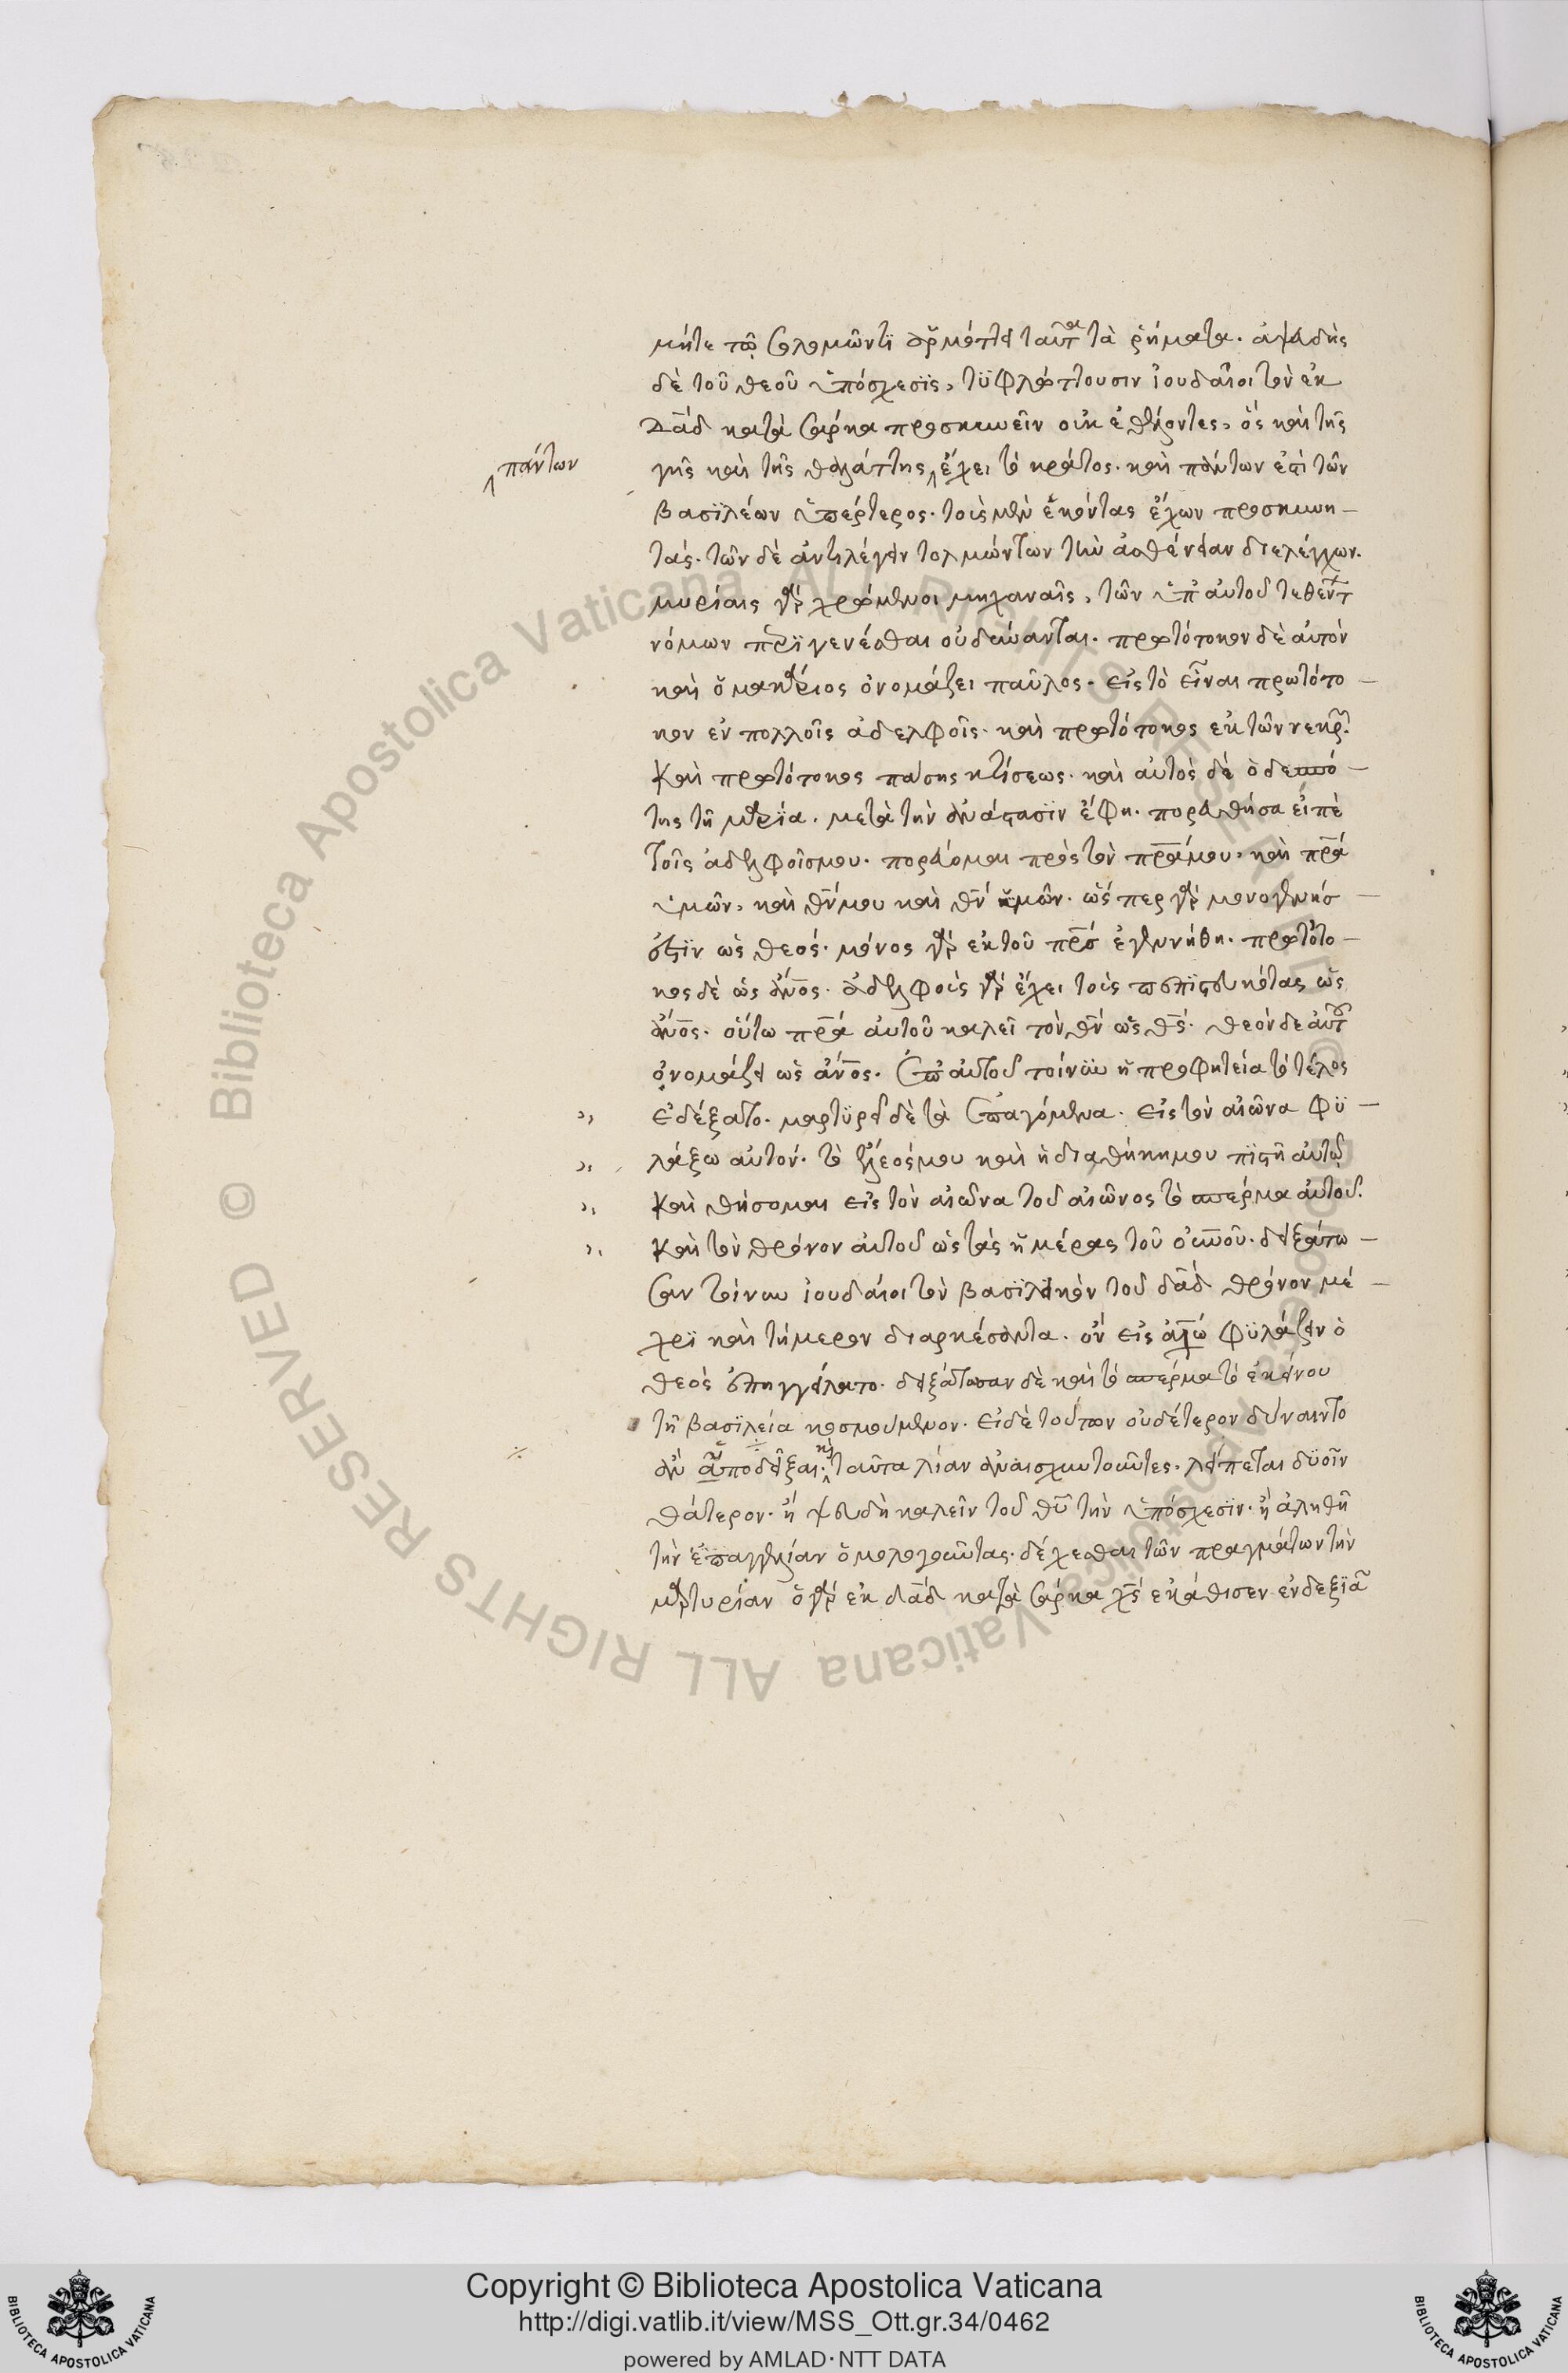 μήτε τῷ σολομῶντι ἁρμόττει ταῦτα τὰ ῥήματα. ἀψευδὴς
δὲ τοῦ θεοῦ ὑπόσχεσϊς, τϋφλώττουσιν ἰουδαῖοι τὸν ἐκ
δαδ κατὰ σάρκα προσκυνεῖν οὐκ ἐθέλοντες, ὃς καὶ τῆς
πάντων
γῆς καὶ τῆς θαλάττης ἔχει τὸ κράτος. καὶ πάντων ἐστὶ τῶν
βασϊλέων ὑπέρτερος. τοὺς μὲν ἑκόντας ἔχων προσκυνη-
τάς. τῶν δὲ ἀντιλέγειν τολμώντων τὴν ἀσθένειαν διελέγχων.
μυρίαις γὰρ χρώμενοι μηχαναῖς, τῶν ὑπ' αὐτοῦ τεθέντ
νόμων περϊγενέσθαι οὐ δύνανται. πρωτότοκον δὲ αὐτὸν
καὶ ὁ μακάριος ὀνομάζει παῦλος. εἰς τὸ εἶναι πρωτότο-
κον ἐν πολλοῖς ἀδελφοῖς. καὶ πρωτότοκος ἐκ τῶν νεκρ.
καὶ πρωτότοκος πάσης κτίσεως. καὶ αὐτὸς δὲ ὁ δεσπό-
της τῇ μαρϊα. μετὰ τὴν ἀνάστασϊν ἔφη. πορευθήσα εἰπὲ
τοῖς ἀδελφοῖς μου. πορεύομαι πρὸς τὸν πρα μου, καὶ πρα
ὑμῶν, καὶ θν μου καὶ θν ὑμῶν. ὥσπερ γὰρ μονογενής
ἐστϊν ὡς θεός. μόνος γὰρ ἐκ τοῦ πρς ἐγεννήθη. πρωτότο-
κος δὲ ὡς ανος. ἀδελφοὺς γὰρ ἔχει τοὺς πεπϊστευκότας ὡς
ανος. οὕτω πρα αὐτοῦ καλεῖ τὸν θν ὡς θς. θεὸν δὲ αὐτ
ὀνομάζει ὡς ανος. ἐπ' αὐτοῦ τοίνϋν ἡ προφητεία τὸ τέλος
ἐδέξατο. μαρτϋρεῖ δὲ τὰ ἐπαγόμενα. εἰς τὸν αἰῶνα φϋ-
λάξω αὐτὸν. τὸ ἔλεός μου καὶ ἡ διαθήκη μου πϊστὴ αὐτῷ
καὶ θήσομαι εἰς τὸν αἰῶνα τοῦ αἰῶνος τὸ σπέρμα αὐτοῦ.
καὶ τὸν θρόνον αὐτοῦ ὡς τὰς ἡμέρας τοῦ οὐνοῦ. δειξάτω-
σαν τοίνυν ἰουδαῖοι τὸν βασϊλικὸν τοῦ δαδ θρόνον μέ-
χρϊ καὶ τήμερον διαρκέσαντα. ὃν εἰς φϋλάξειν ὁ
θεὸς ἐπηγγείλατο. δειξάτωσαν δὲ καὶ τὸ σπέρμα τὸ ἐκείνου
τῇ βασϊλεία κοσμούμενον. εἰ δὲ τούτων οὐδέτερον δύναιντο
ἂν ἀποδεῖξαι. καὶ ταῦτα λίαν ἀναισχυντοῦντες, λείπεται δϋοῖν
θάτερον. ἢ ψευδῆ καλεῖν τοῦ θυ τὴν ὑπόσχεσϊν. ἢ ἀληθῆ
τὴν ἐπαγγελίαν ὁμολογοῦντας. δέχεσθαι τῶν πραγμάτων τὴν
μαρτυρίαν ὁ γὰρ ἐκ δαδ κατὰ σάρκα χς ἐκάθισεν ἐν δεξϊᾶ
Copyright © Biblioteca Apostolica Vaticana
http://digi.vatlib.it/view/MSS_Ott.gr.34/0462
powered by AMLAD·NTT DATA
BIBLIOTECA APOSTOLICA VATICANA
BIBLIOTECA APOSTOLICA VATICANA
© Biblioteca Apostolica Vaticana ALL RIGHTS RESERVED
© Biblioteca Apostolica Vaticana ALL RIGHTS RESERVED